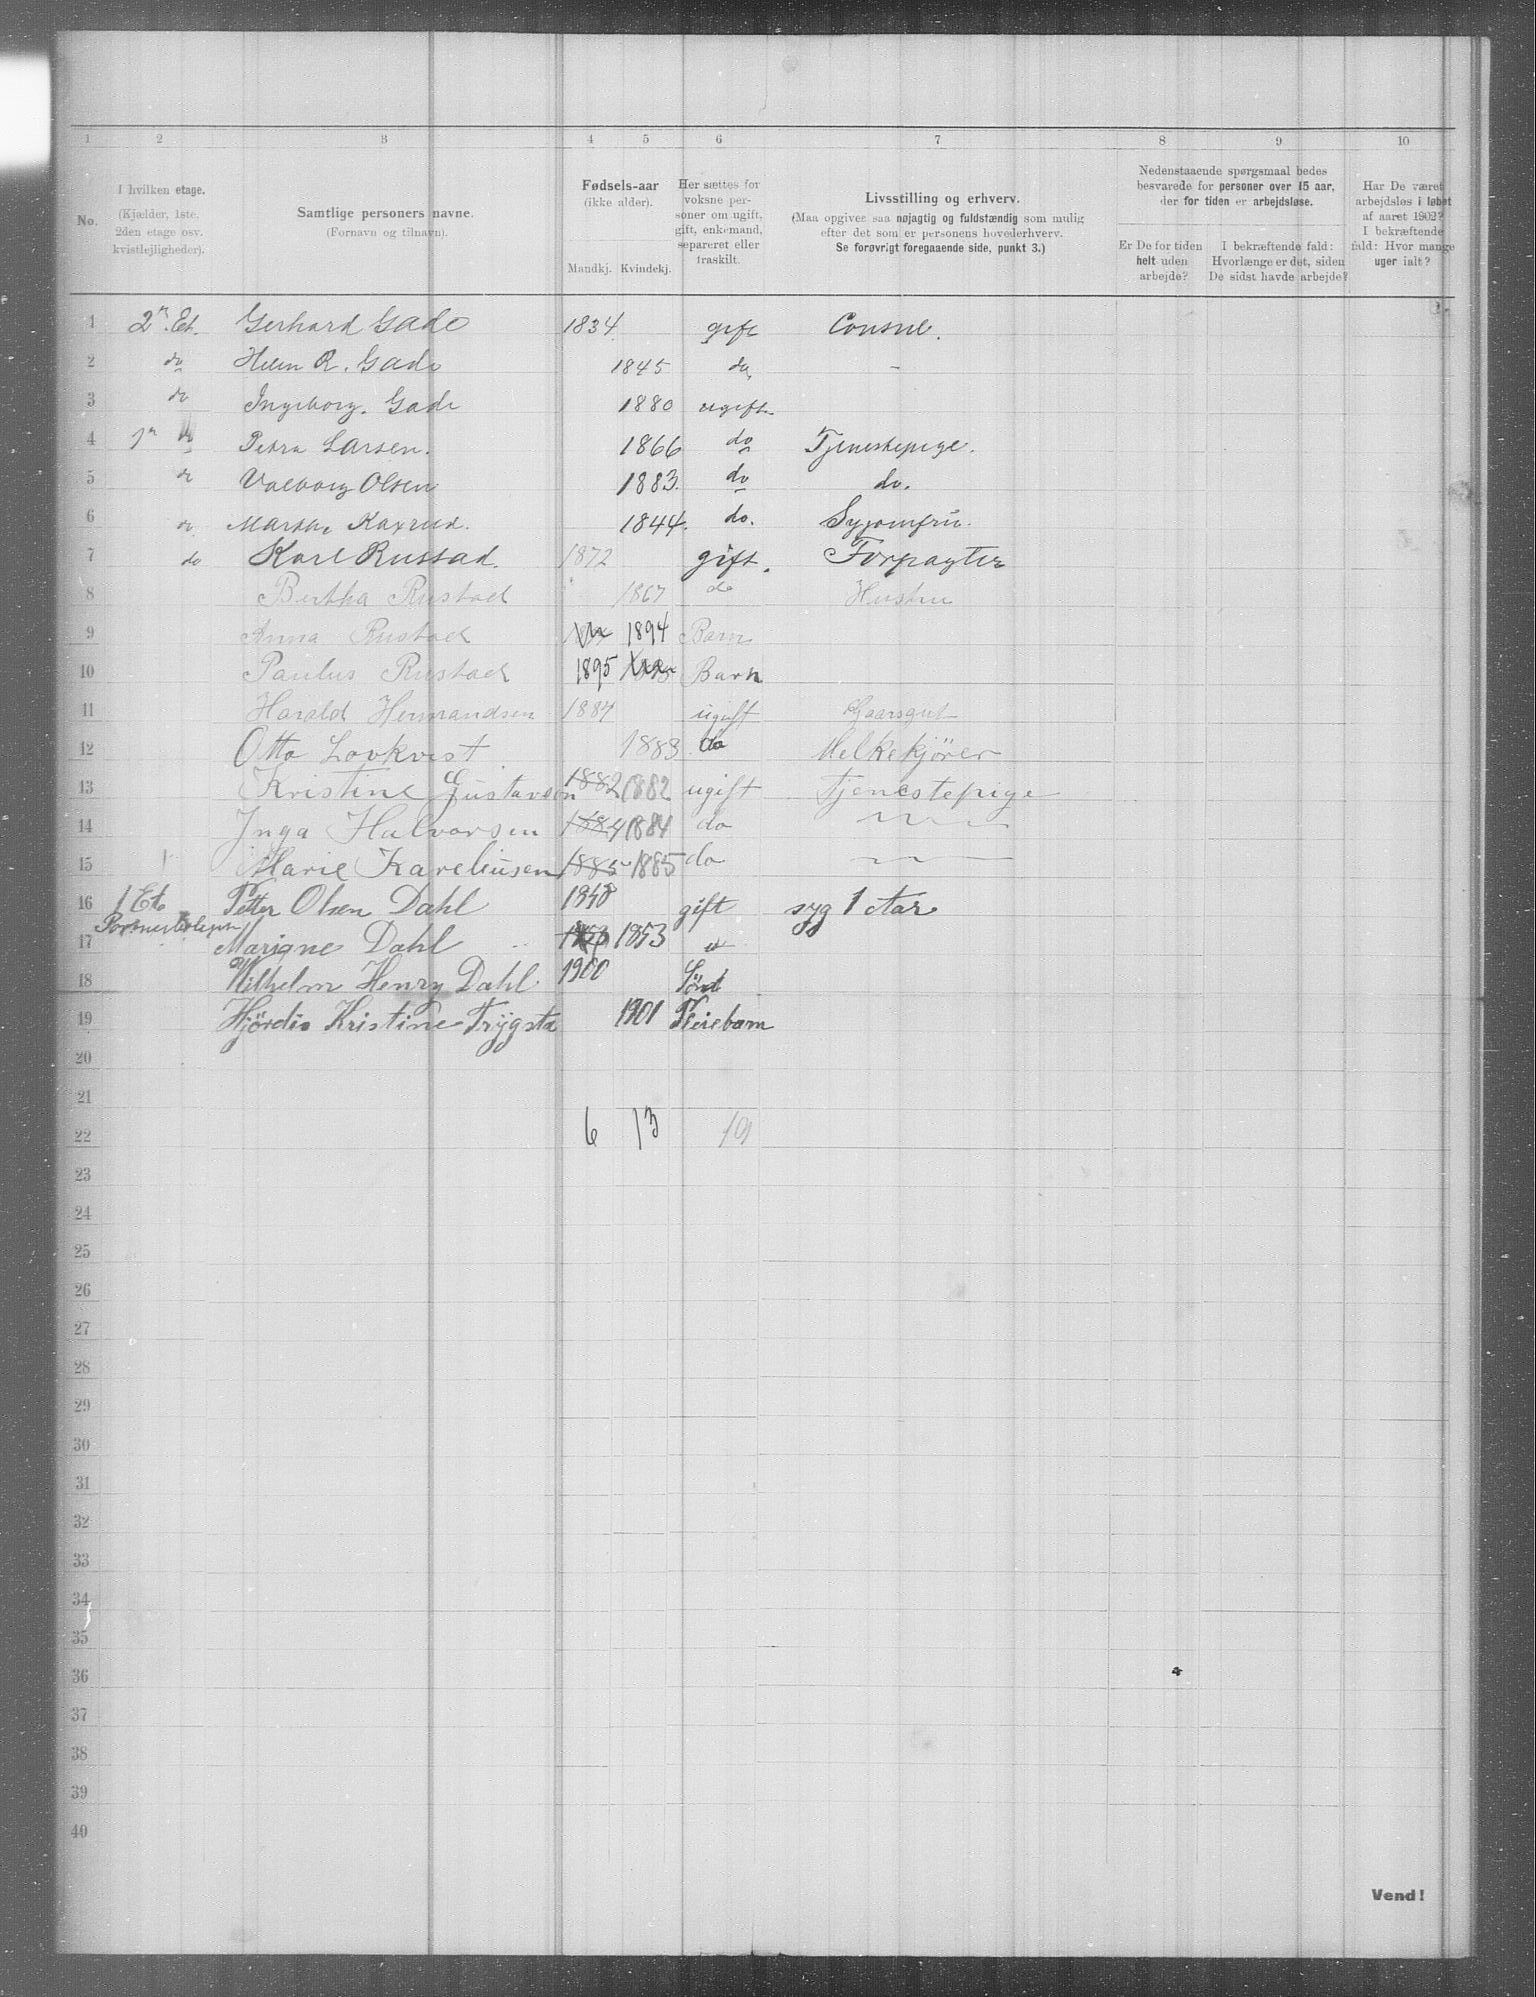 1 2 3 4 5 6 7 8 9 10
No.
I hvilken etage.
(Kjælder, 1ste,
2den etage osv.
kvistlejligheder).
Samtlige personers navne.
(Fornavn og tilnavn).
Fødsels-aar
(ikke alder).
Mandkj. Kvindekj.
Her sættes for
voksne per-
soner om ugift,
gift, enkemand,
separeret eller
fraskilt.
Livsstilling og erhverv.
(Maa opgives saa nøjagtig og fuldstændig som mulig
efter det som er personens hovederhverv.
Se forøvrigt foregaaende side, punkt 3.)
Nedenstaaende spørgsmaal bedes
besvarede for personer over 15 aar,
der for tiden er arbejdsløse.
Er De for tiden
helt uden
arbejde?
I bekræftende fald:
Hvorlænge er det, siden
De sidst havde arbejde?
Har De været
arbejdsløs i løbet
af aaret 1902?
I bekræftende
fald: Hvor mange
uger ialt?
1 2n. Et. Gerhard Gade 1834. gift Consul.
2 do Helen R. Gade 1845 do, -
3 do Ingeborg. Gade 1880 ugift
4 1n do Petra Larsen. 1866 do Tjenestepige.
5 do Valborg Olsen 1883. do do.
6 do. Marthe 1844. do. Syjomfru.
7 do Karl Rustad. 1872 gift. Forpagter
8 Bertha Rustad 1867 do Hustru
9 Anna Rustad 1894 Barn
10 Paulus Rustad 1895 Barn
11 Harald Hermandsen 1884 ugift Gaarsgut
12 Otto Lovkvist 1883 do Melkekjører
13 Kristine Gustavson 1882 1882 ugift Tjenestepige
14 Inga Halvorsen 1884 1884 do
15 Marie Kareliusen 1885 1885 do
16 1 Et. Petter Olsen Dahl 1848 gift syg 1 Aar
17 Mariane Dahl 1853 1853 "
18 Wilhelm Henry Dahl 1900 Sønd
19 Hjördis Kristine Trygsta 1901 Pleiebarn
20
21
22 6 13 19
23
24
25
26
27
28
29
30
31
32
33
34
35
36
37
38
39
40
Vend!